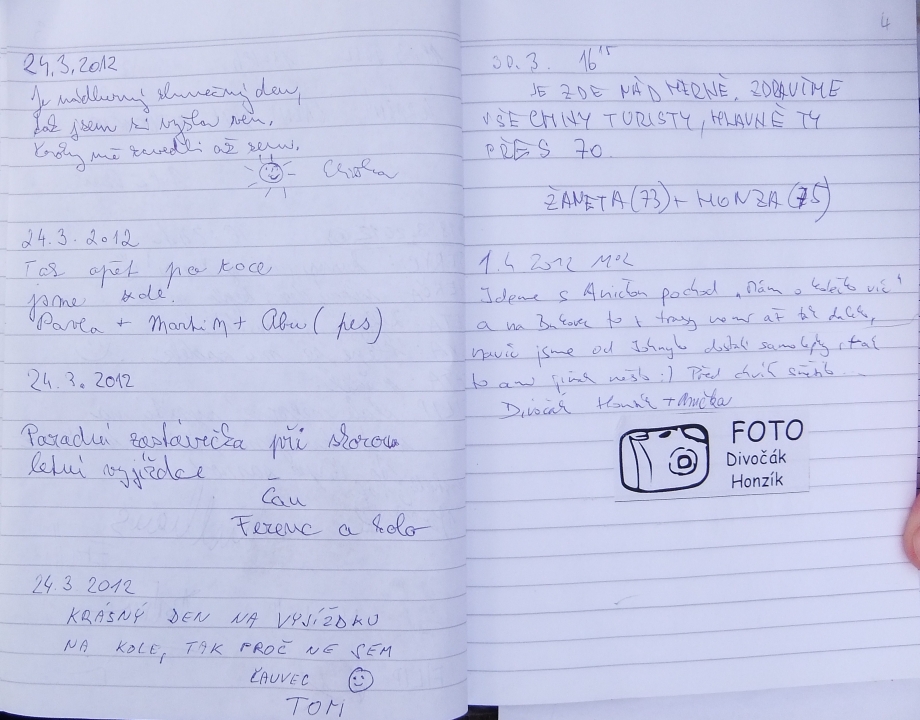 24.3.2012
Je nádherný slunečný den,
tak jsem si vyšla ven.
Kroky mě zavedli až sem.
24.3.2012
Tak opět po roce
jsme zde.
Pavla + Martin + Abu (pes)
24.3.2012
Paradní zastávečka při skorou
letní vyjížďce
Čau
Ferenc a
24.3 2012
KRÁSNÝ DEN NA VYJÍŽDKU
NA KOLE, TAK PROČ NE SEM
ČAUVEC
TOM
4
30.3. 16 15
JE ZDE NÁDHERNĚ. ZDRAVÍME
VŠECHNY TURISTY, HLAVNĚ TY
PŘES 70.
ŽANETA (73) + HONZA (75)
1.4 2012
Jdeme s Aničkou pochod „Mám o kolečko víc"
a na to z trasy není až tak daleko,
navíc jsme od dostali samolepky, tak
to ani jinak nešlo :) Před chvílí sněžilo...
Divočák Honzík + Anička
FOTO
Divočák
Honzík